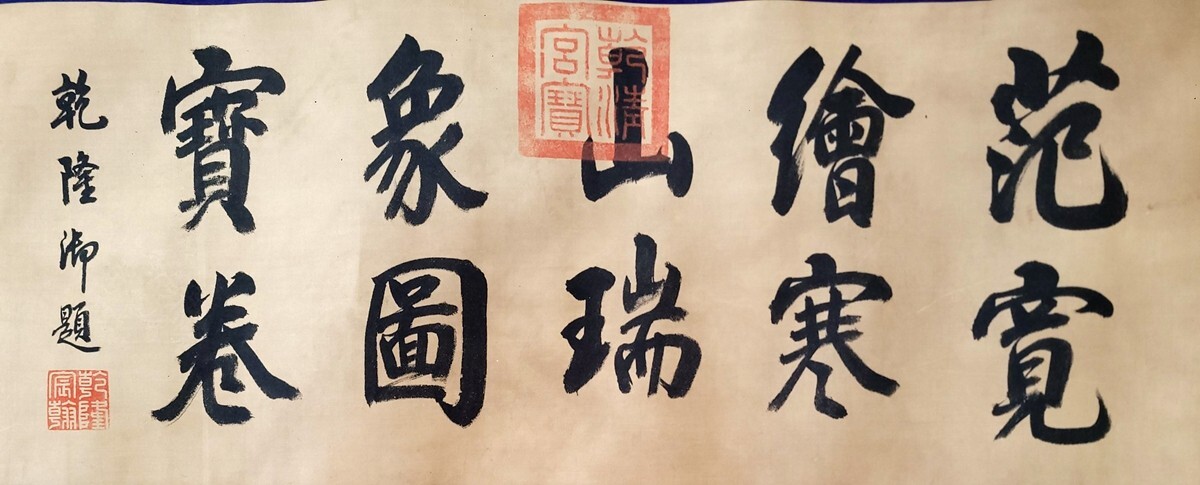 范寬
繪寒
山瑞
象圖
寶卷
乾隆御題
乾清宮寶
乾隆宸翰